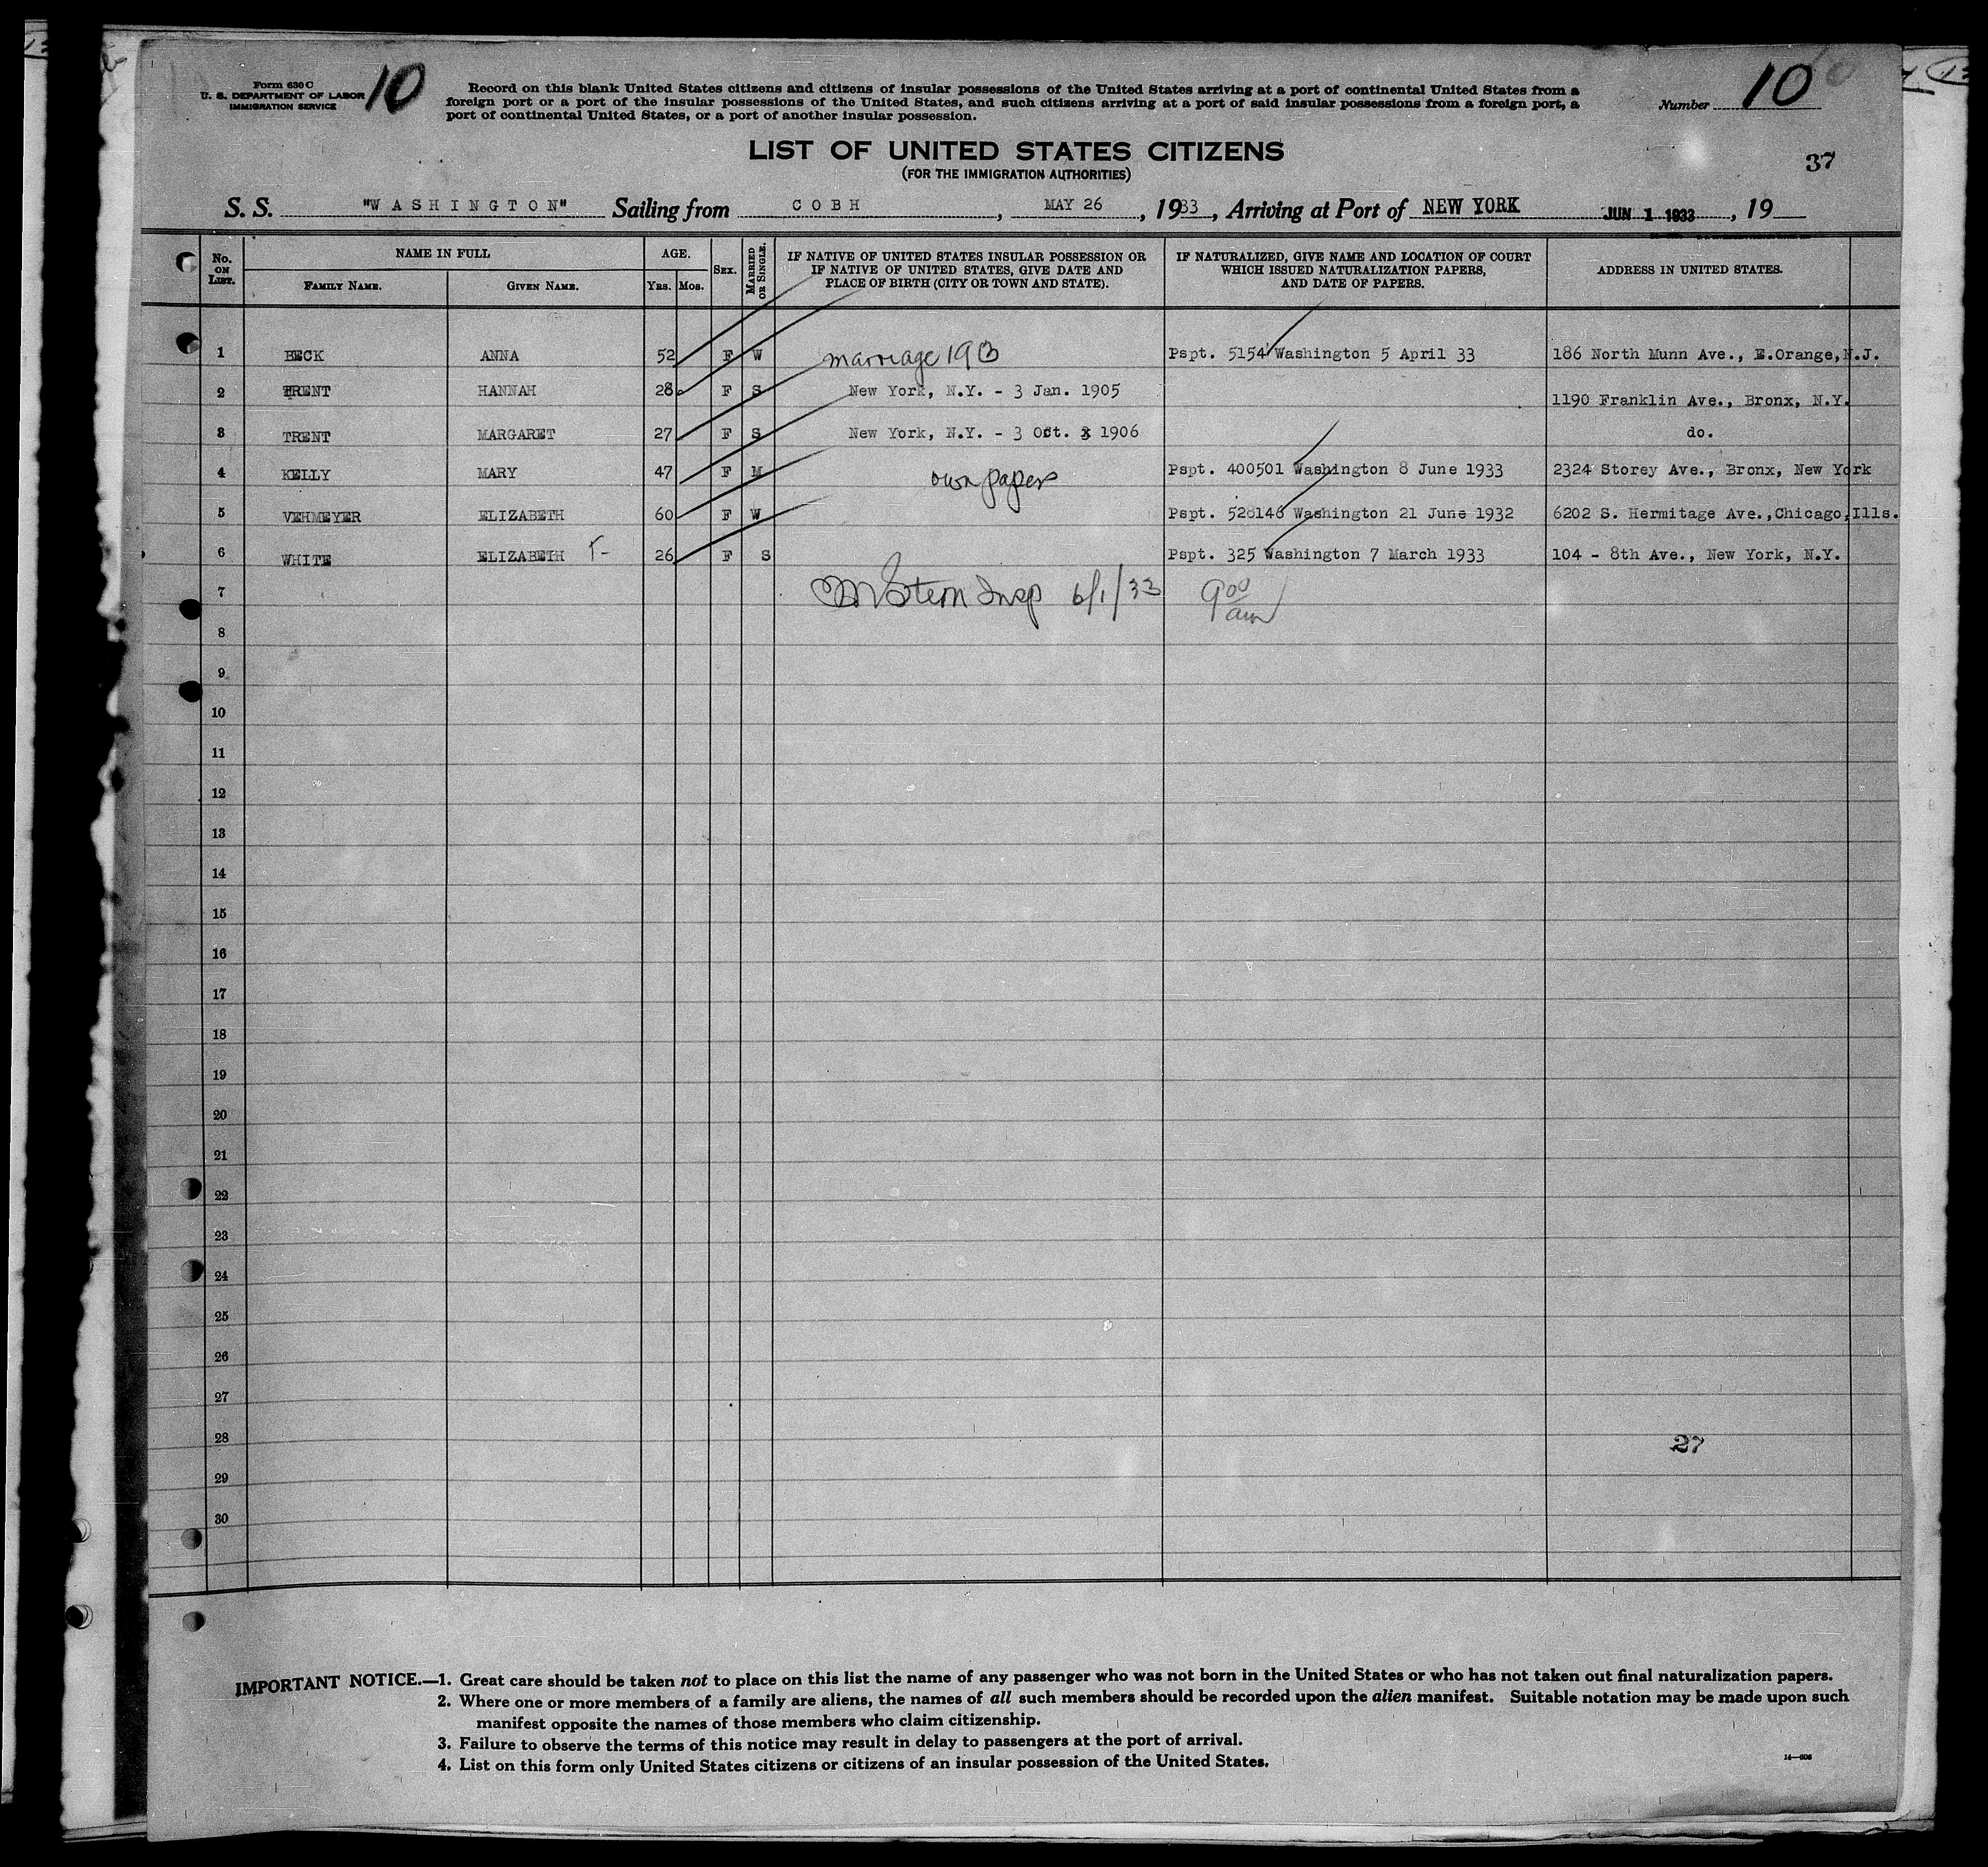 Form 630 C
U. S. DEPARTMENT OF LABOR
IMMIGRATION SERVICE
10
Record on this blank United States citizens and citizens of insular possessions of the United States arriving at a port of continental United States from a
foreign port or a port of the insular possessions of the United States, and such citizens arriving at a port of said insular possessions from a foreign port, a
port of continental United States, or a port of another insular possession.
Number 10
37
LIST OF UNITED STATES CITIZENS
(FOR THE IMMIGRATION AUTHORITIES)
S. S. "WASHINGTON" Sailing from COBH, MAY 26, 1933, Arriving at Port of NEW YORK JUN 1 1933, 19
No. ON LIST. NAME IN FULL AGE. SEX. MARRIED OR SINGLE. IF NATIVE OF UNITED STATES INSULAR POSSESSION OR IF NATIVE OF UNITED STATES, GIVE DATE AND PLACE OF BIRTH (CITY OR TOWN AND STATE). IF NATURALIZED, GIVE NAME AND LOCATION OF COURT WHICH ISSUED NATURALIZATION PAPERS, AND DATE OF PAPERS. ADDRESS IN UNITED STATES.
FAMILY NAME. GIVEN NAME. YRS. MOS.
1 BECK ANNA 52 F W marriage 1913 Pspt. 5154 Washington 5 April 33 186 North Munn Ave., E.Orange,N.J.
2 TRENT HANNAH 28 F S New York, N.Y. - 3 Jan. 1905 1190 Franklin Ave., Bronx, N.Y.
3 TRENT MARGARET 27 F S New York, N.Y. - 3 Oct. 1906 do.
4 KELLY MARY 47 F M own papers Pspt. 400501 Washington 8 June 1933 2324 Storey Ave., Bronx, New York
5 VEHMEYER ELIZABETH 60 F W Pspt. 528146 Washington 21 June 1932 6202 S. Hermitage Ave.,Chicago,Ills.
6 WHITE ELIZABETH T- 26 F S Pspt. 325 Washington 7 March 1933 104 - 8th Ave., New York, N.Y.
7 Stern Insp 6/1/33 9 00 am
8
9
10
11
12
13
14
15
16
17
18
19
20
21
22
23
24
25
26
27
28 27
29
30
IMPORTANT NOTICE.—1. Great care should be taken not to place on this list the name of any passenger who was not born in the United States or who has not taken out final naturalization papers.
2. Where one or more members of a family are aliens, the names of all such members should be recorded upon the alien manifest. Suitable notation may be made upon such
manifest opposite the names of those members who claim citizenship.
3. Failure to observe the terms of this notice may result in delay to passengers at the port of arrival.
4. List on this form only United States citizens or citizens of an insular possession of the United States.